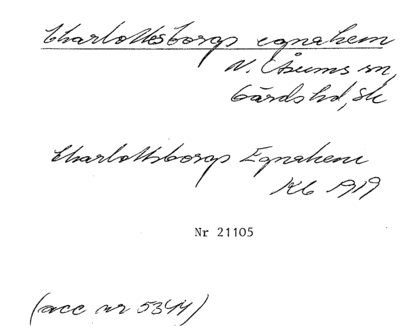 Charlottesborgs egnahem
N. Åsums sn,
Gärds hd, Sk
Charlottsborgs Egnahem
Kb 1919
Nr 21105
(acc nr 5344)